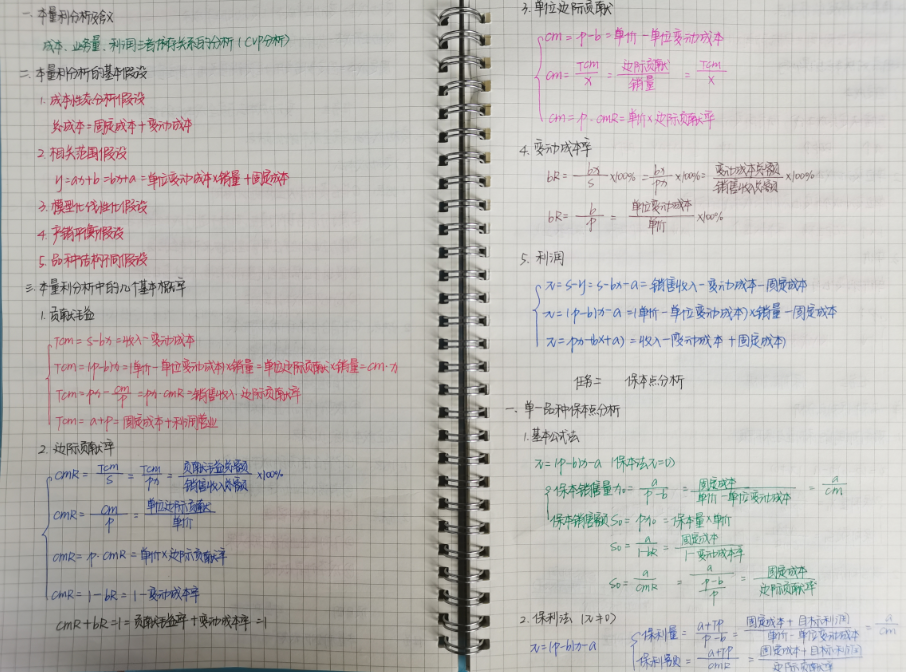 一. 本量利分析的含义
成本、业务量、利润三者依存关系的分析(CVP分析)
二. 本量利分析的基本假设
1. 成本性态分析假设
总成本=固定成本+变动成本
2. 相关范围假设
y=ax+b=bx+a=单位变动成本×销量+固定成本
3. 模型化线性化假设
4. 产销平衡假设
5. 品种结构不同假设
三. 本量利分析中的几个基本概率
1. 贡献毛益
Tcm=s-bx=收入-变动成本
Tcm=(p-b)x=(单价-单位变动成本)×销量=单位边际贡献×销量=cm·x
Tcm=px·cm/p=px·cmR=销售收入·边际贡献率
Tcm=a+p=固定成本+利润营业
2. 边际贡献率
cmR=Tcm/s=Tcm/px=贡献毛益总额/销售收入总额×100%
cmR=cm/p=单位边际贡献/单价
cmR=p·cmR=单价×边际贡献率
cmR=1-bR=1-变动成本率
cmR+bR=1=贡献毛益率+变动成本率=1
3. 单位边际贡献
cm=p-b=单价-单位变动成本
cm=Tcm/x=边际贡献/销量=Tcm/x
cm=p·cmR=单价×边际贡献率
4. 变动成本率
bR=bx/s×100%=bx/px×100%=变动成本总额/销售收入总额×100%
bR=b/p=单位变动成本/单价×100%
5. 利润
π=s-y=s-bx-a=销售收入-变动成本-固定成本
π=(p-b)x-a=(单价-单位变动成本)×销量-固定成本
π=px-(bx+a)=收入-(变动成本+固定成本)
任务二 保本点分析
一. 单一品种保本点分析
1. 基本公式法
π=(p-b)x-a (保本法π=0)
保本销售量x₀=a/p-b=固定成本/单价-单位变动成本=a/cm
保本销售额S₀=px₀=保本量×单价
S₀=a/1-bR=固定成本/1-变动成本率
S₀=a/cmR=a/(p-b/p)=固定成本/边际贡献率
2. 保利法 (π≠0)
π=(p-b)x-a
保利量=a+TP/p-b=固定成本+目标利润/单价-单位变动成本=a/cm
保利额=a+TP/cmR=固定成本+目标利润/边际贡献率